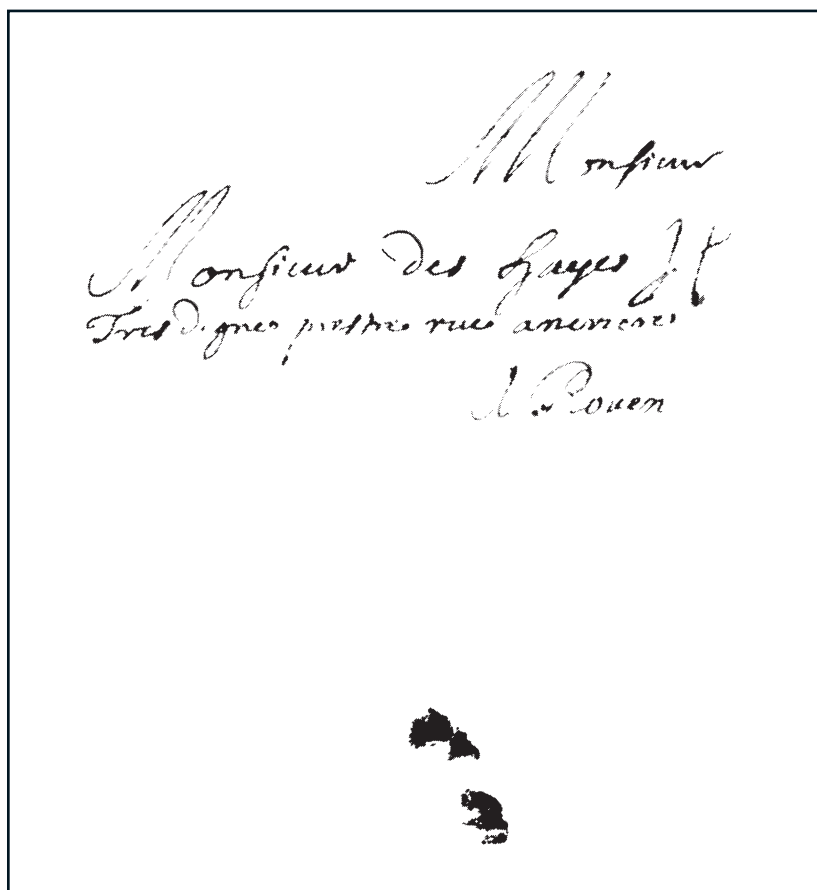 Monsieur
Monsieur des hayes
Tres digne prestre rue
A Rouen